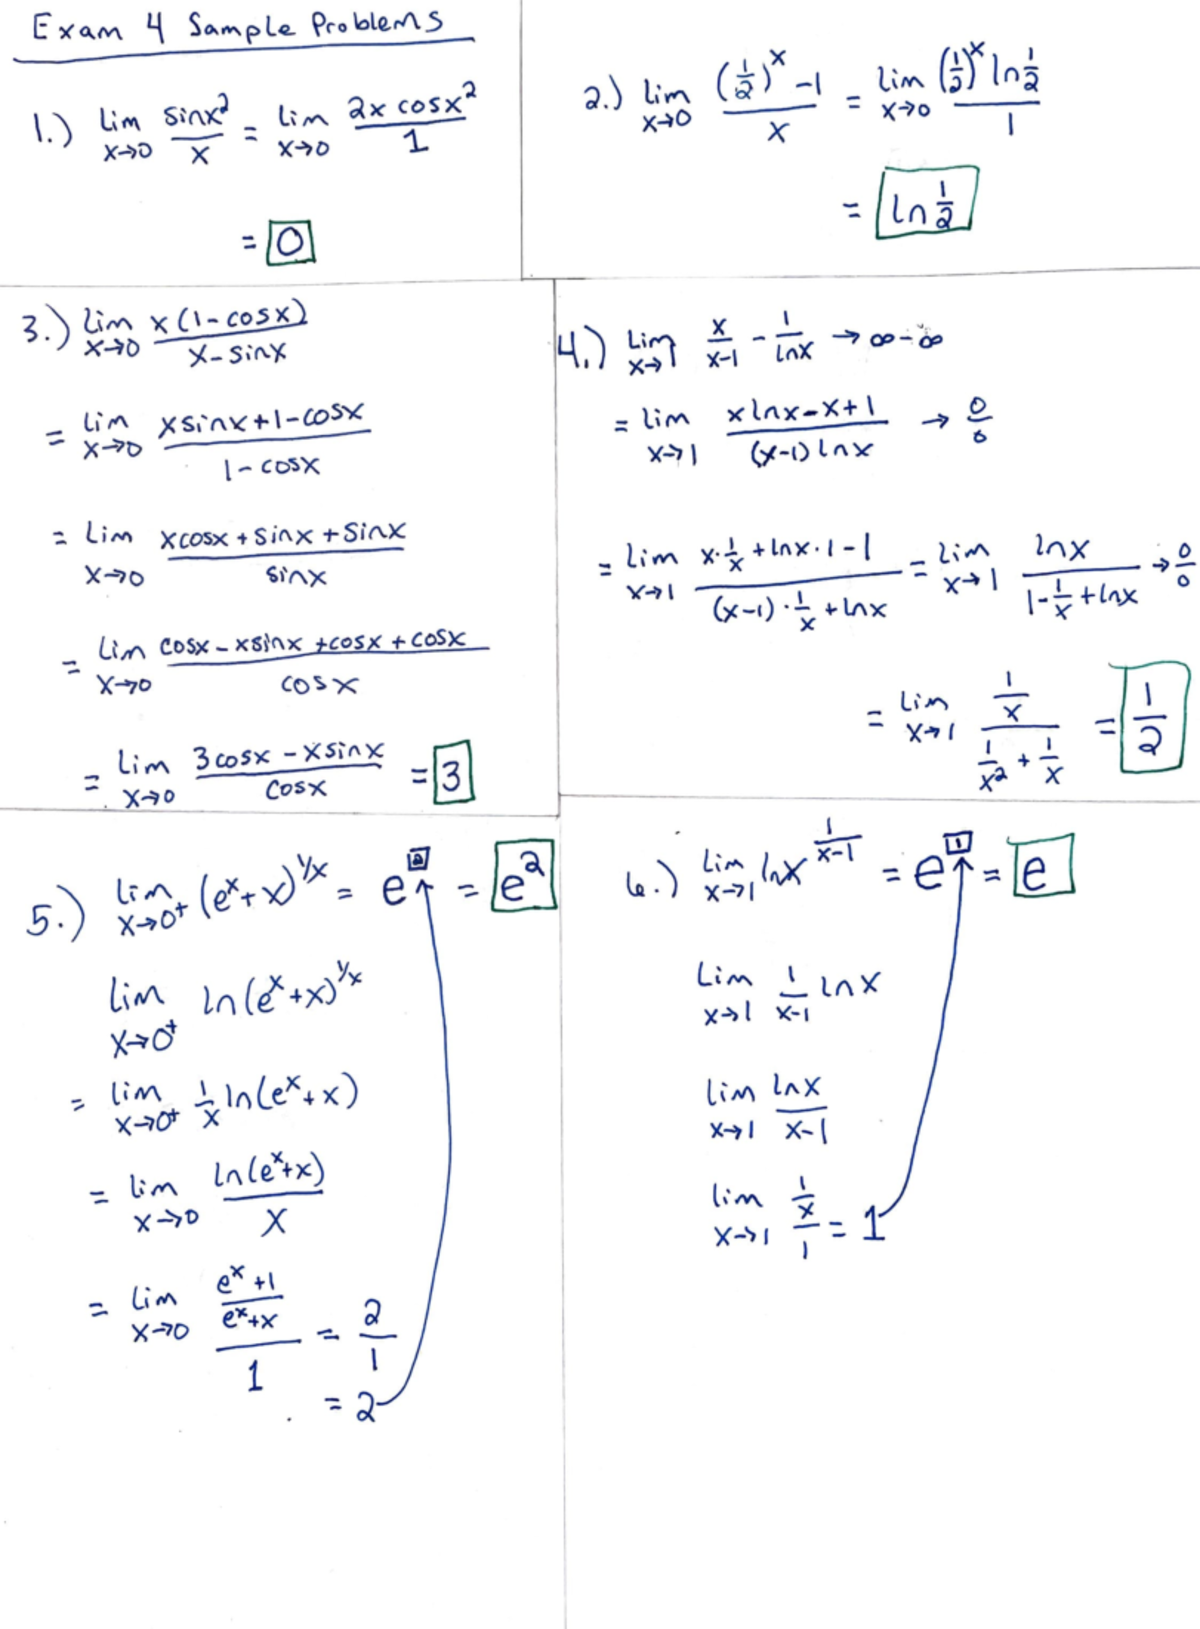 Exam 4 Sample Problems
1.) lim x→0 sinx²/x = lim x→0 2x cosx²/1
= 0
2.) lim x→0 ((1/2)^x -1)/x = lim x→0 (1/2)^x ln 1/2 / 1
= ln 1/2
3.) lim x→0 x(1-cosx)/(x-sinx)
= lim x→0 (xsinx+1-cosx)/(1-cosx)
= lim x→0 (xcosx + sinx + sinx)/sinx
= lim x→0 (cosx - xsinx + cosx + cosx)/cosx
= lim x→0 (3cosx - xsinx)/cosx = 3
4.) lim x→1 x/(x-1) - 1/lnx → ∞-∞
= lim x→1 (xlnx-x+1)/((x-1)lnx) → 0/0
= lim x→1 (x·1/x + lnx·1-1)/((x-1)·1/x + lnx) = lim x→1 lnx/(1-1/x+lnx) → 0/0
= lim x→1 (1/x)/(1/x² + 1/x) = 1/2
5.) lim x→0⁺ (e^x + x)^1/x = e^2 = e²
lim x→0⁺ ln(e^x + x)^1/x
= lim x→0⁺ 1/x ln(e^x + x)
= lim x→0 ln(e^x + x)/x
= lim x→0 ((e^x + 1)/(e^x + x))/1 = 2/1
= 2
6.) lim x→1 lnx^(1/(x-1)) = e^1 = e
lim x→1 1/(x-1) lnx
lim x→1 lnx/(x-1)
lim x→1 (1/x)/1 = 1